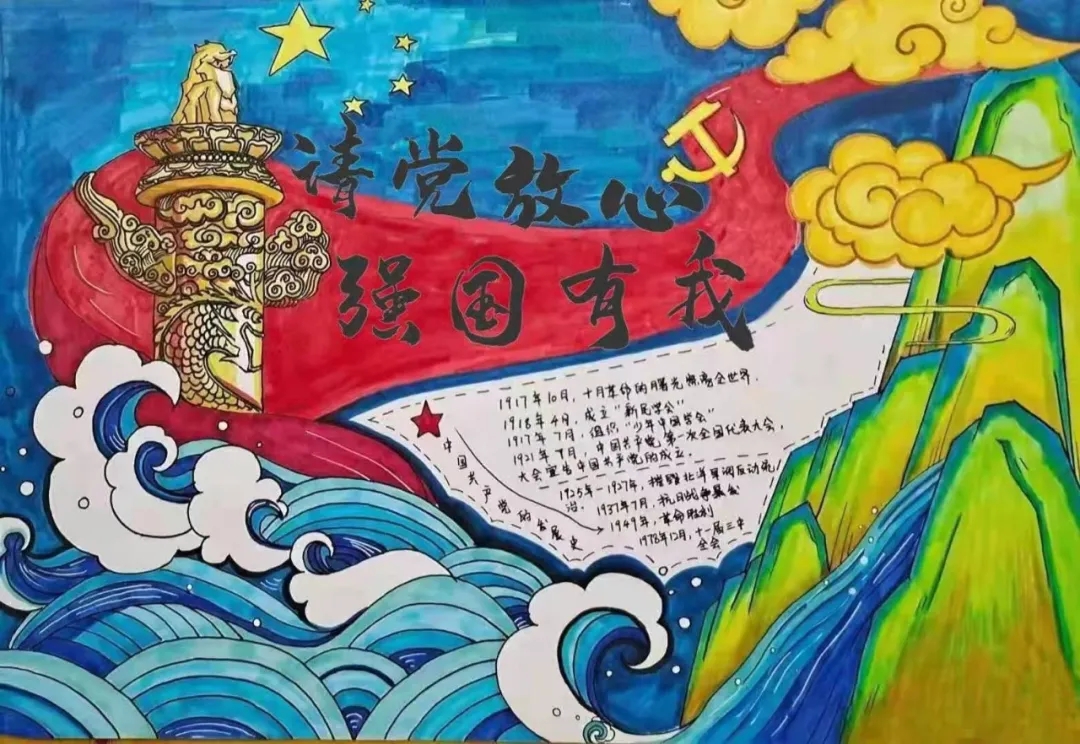 请党放心
强国有我
1917年10月，十月革命的曙光照亮全世界．
1918年4月，成立"新民学会"
1917年7月，组织"少年中国学会"
1921年7月，中国共产党第一次全国代表大会，
大会宣告中国共产党的成立．
1925年－1927年，推翻北洋军阀反动统
治．1937年7月，抗日战争
1949年，革命胜利
1978年12月，十一届三中
全会
中国共产党的发展史